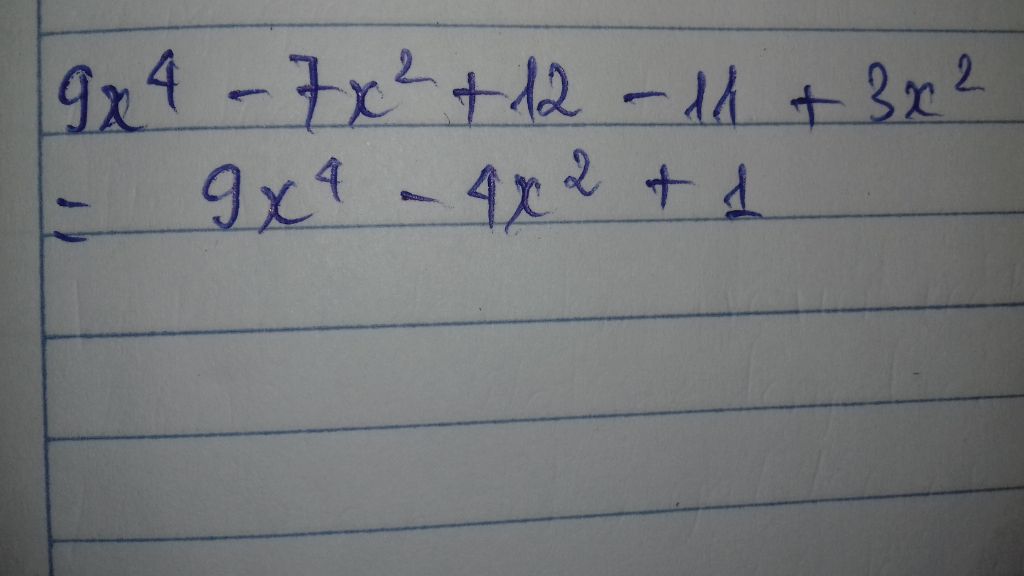 9x⁴ - 7x² + 12 - 11 + 3x²
= 9x⁴ - 4x² + 1